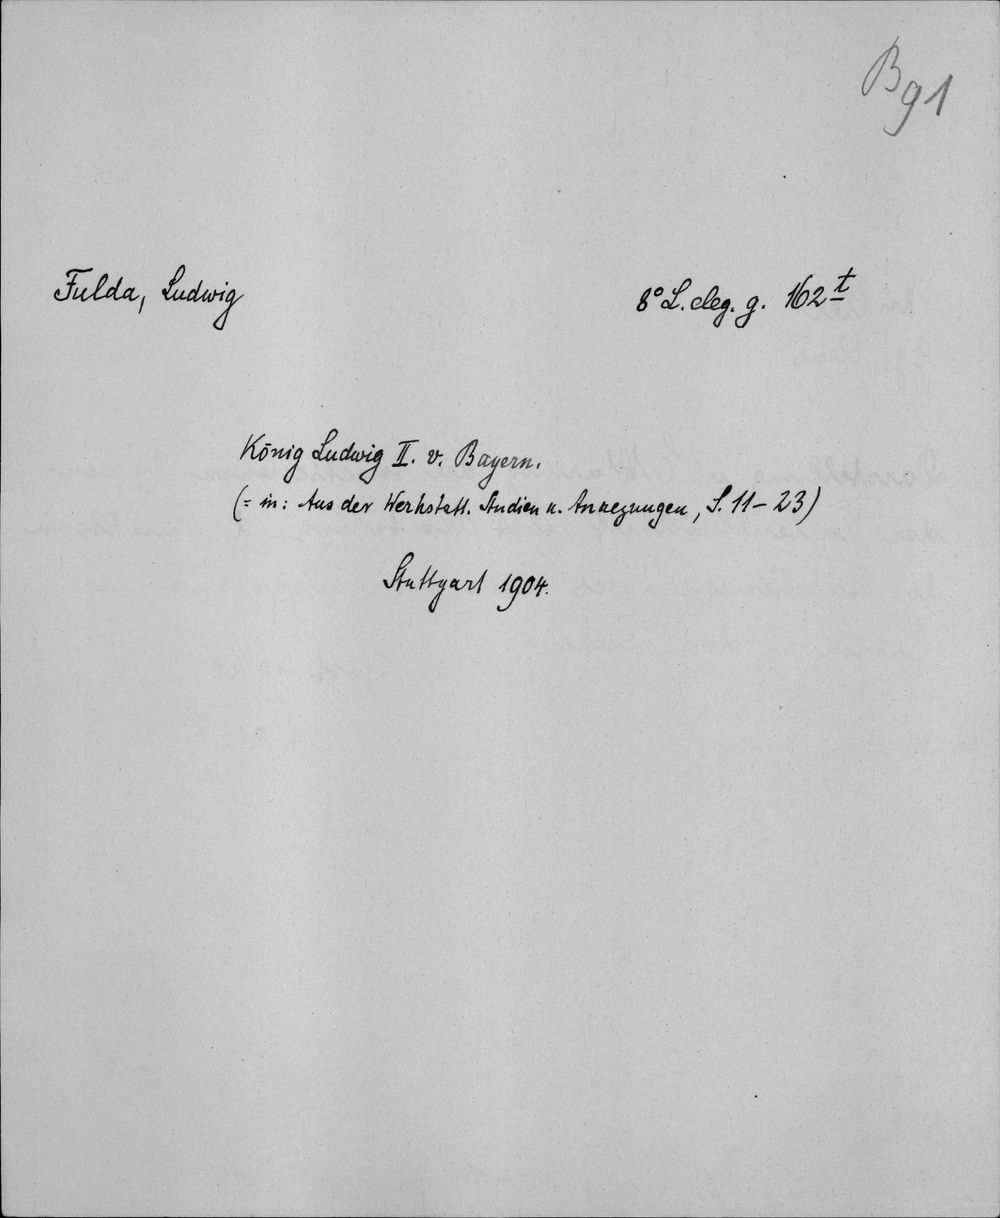 Bg1
Fulda, Ludwig
8° L. eleg. g. 162t
König Ludwig II. v. Bayern.
(= in: Aus der Werkstatt. Studien u. Anregungen, S. 11–23)
Stuttgart 1904.